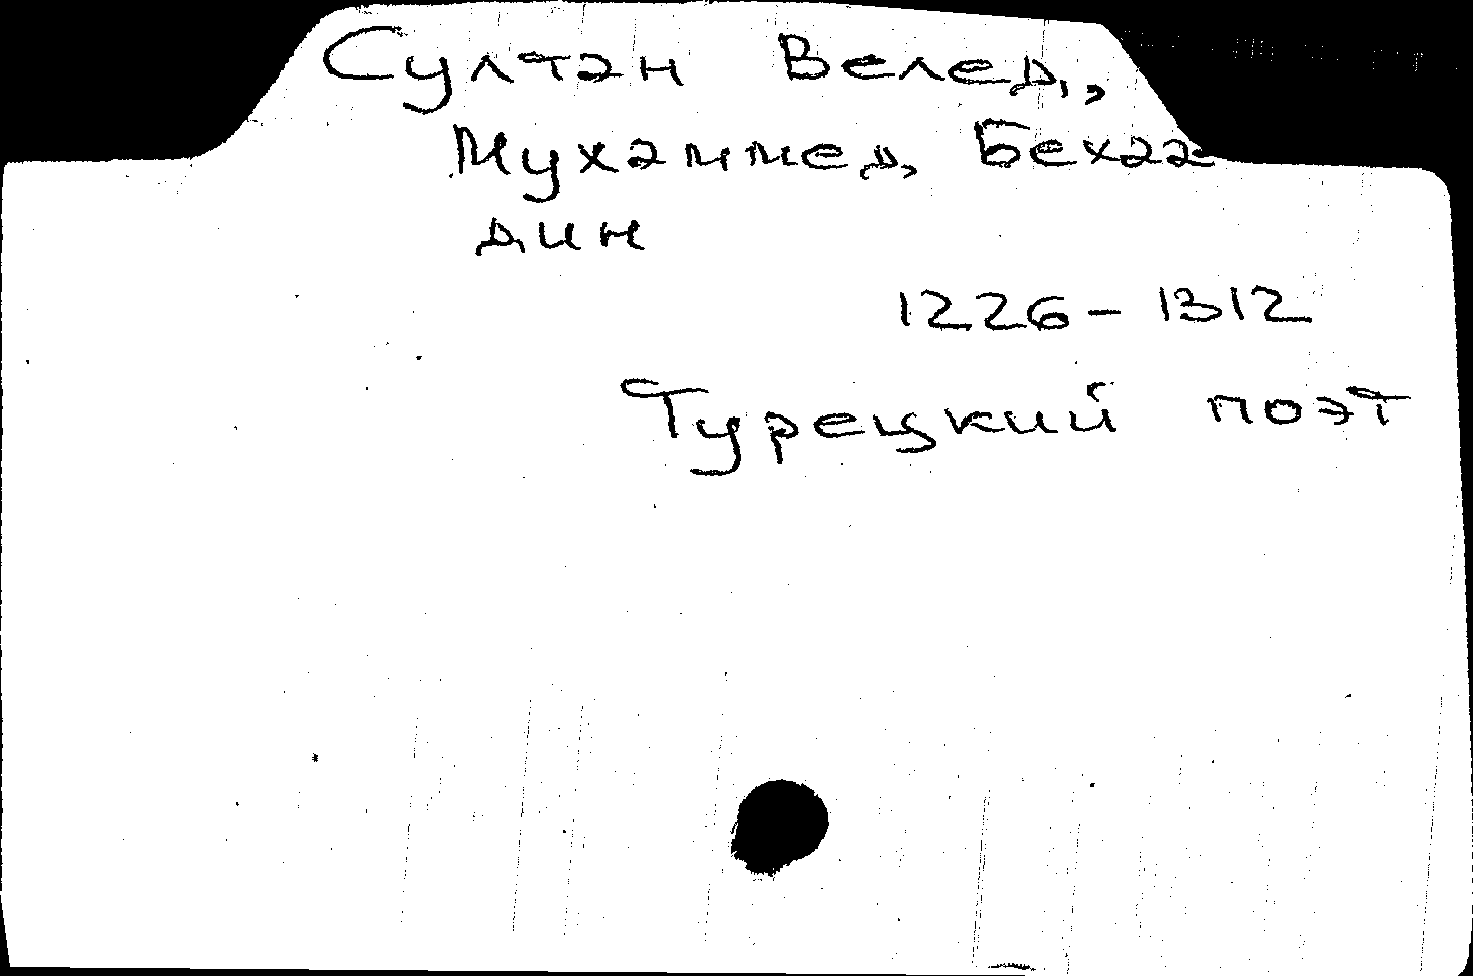 Султан Велед,
Мухаммед Бехаэ
дин
1226-1312
Турецкий поэт